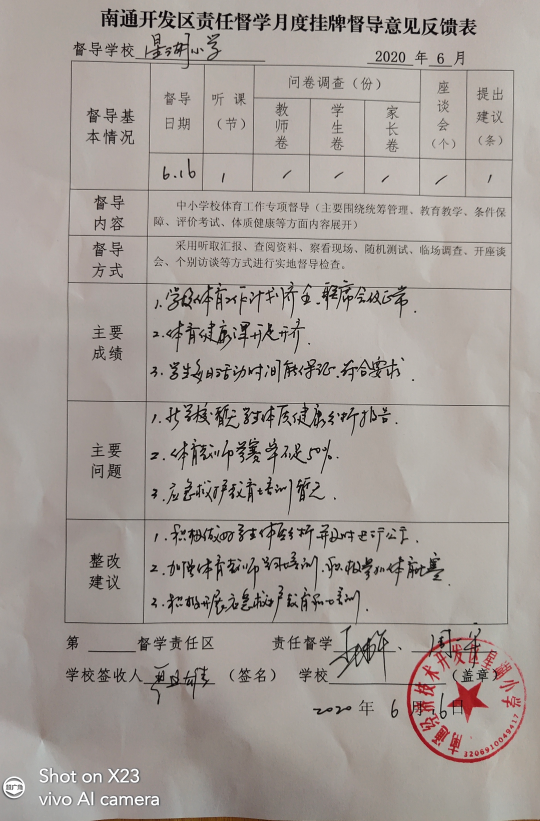 南通开发区责任督学月度挂牌督导意见反馈表
督导学校 星湖小学 2020 年 6 月
督导基本情况
督导日期
听课（节）
问卷调查（份）
教师卷
学生卷
家长卷
座谈会（个）
提出建议（条）
6.16 1 / / / / 1
督导内容
中小学校体育工作专项督导（主要围绕统筹管理、教育教学、条件保
障、评价考试、体质健康等方面内容展开）
督导方式
采用听取汇报、查阅资料、察看现场、随机测试、临场调查、开座谈
会、个别访谈等方式进行实地督导检查。
主要成绩
1.学校体育工作计划齐全、联席会议正常
2.体育健康课开足开齐
3.学生每日活动时间能保证、符合要求
主要问题
1.学校暂无学生体质健康分析报告.
2.体育教师参赛率不足50%.
3.应急救护教育培训暂无.
整改建议
1.积极做好学生体质分析并及时公示.
2.加强体育教师培训、积极参加体育比赛.
3.积极开展应急救护教育和培训.
第 督学责任区 责任督学
学校签收人 （签名） 学校 （盖章）
2020 年 6 月 16 日
3206910049417
Shot on X23
vivo AI camera